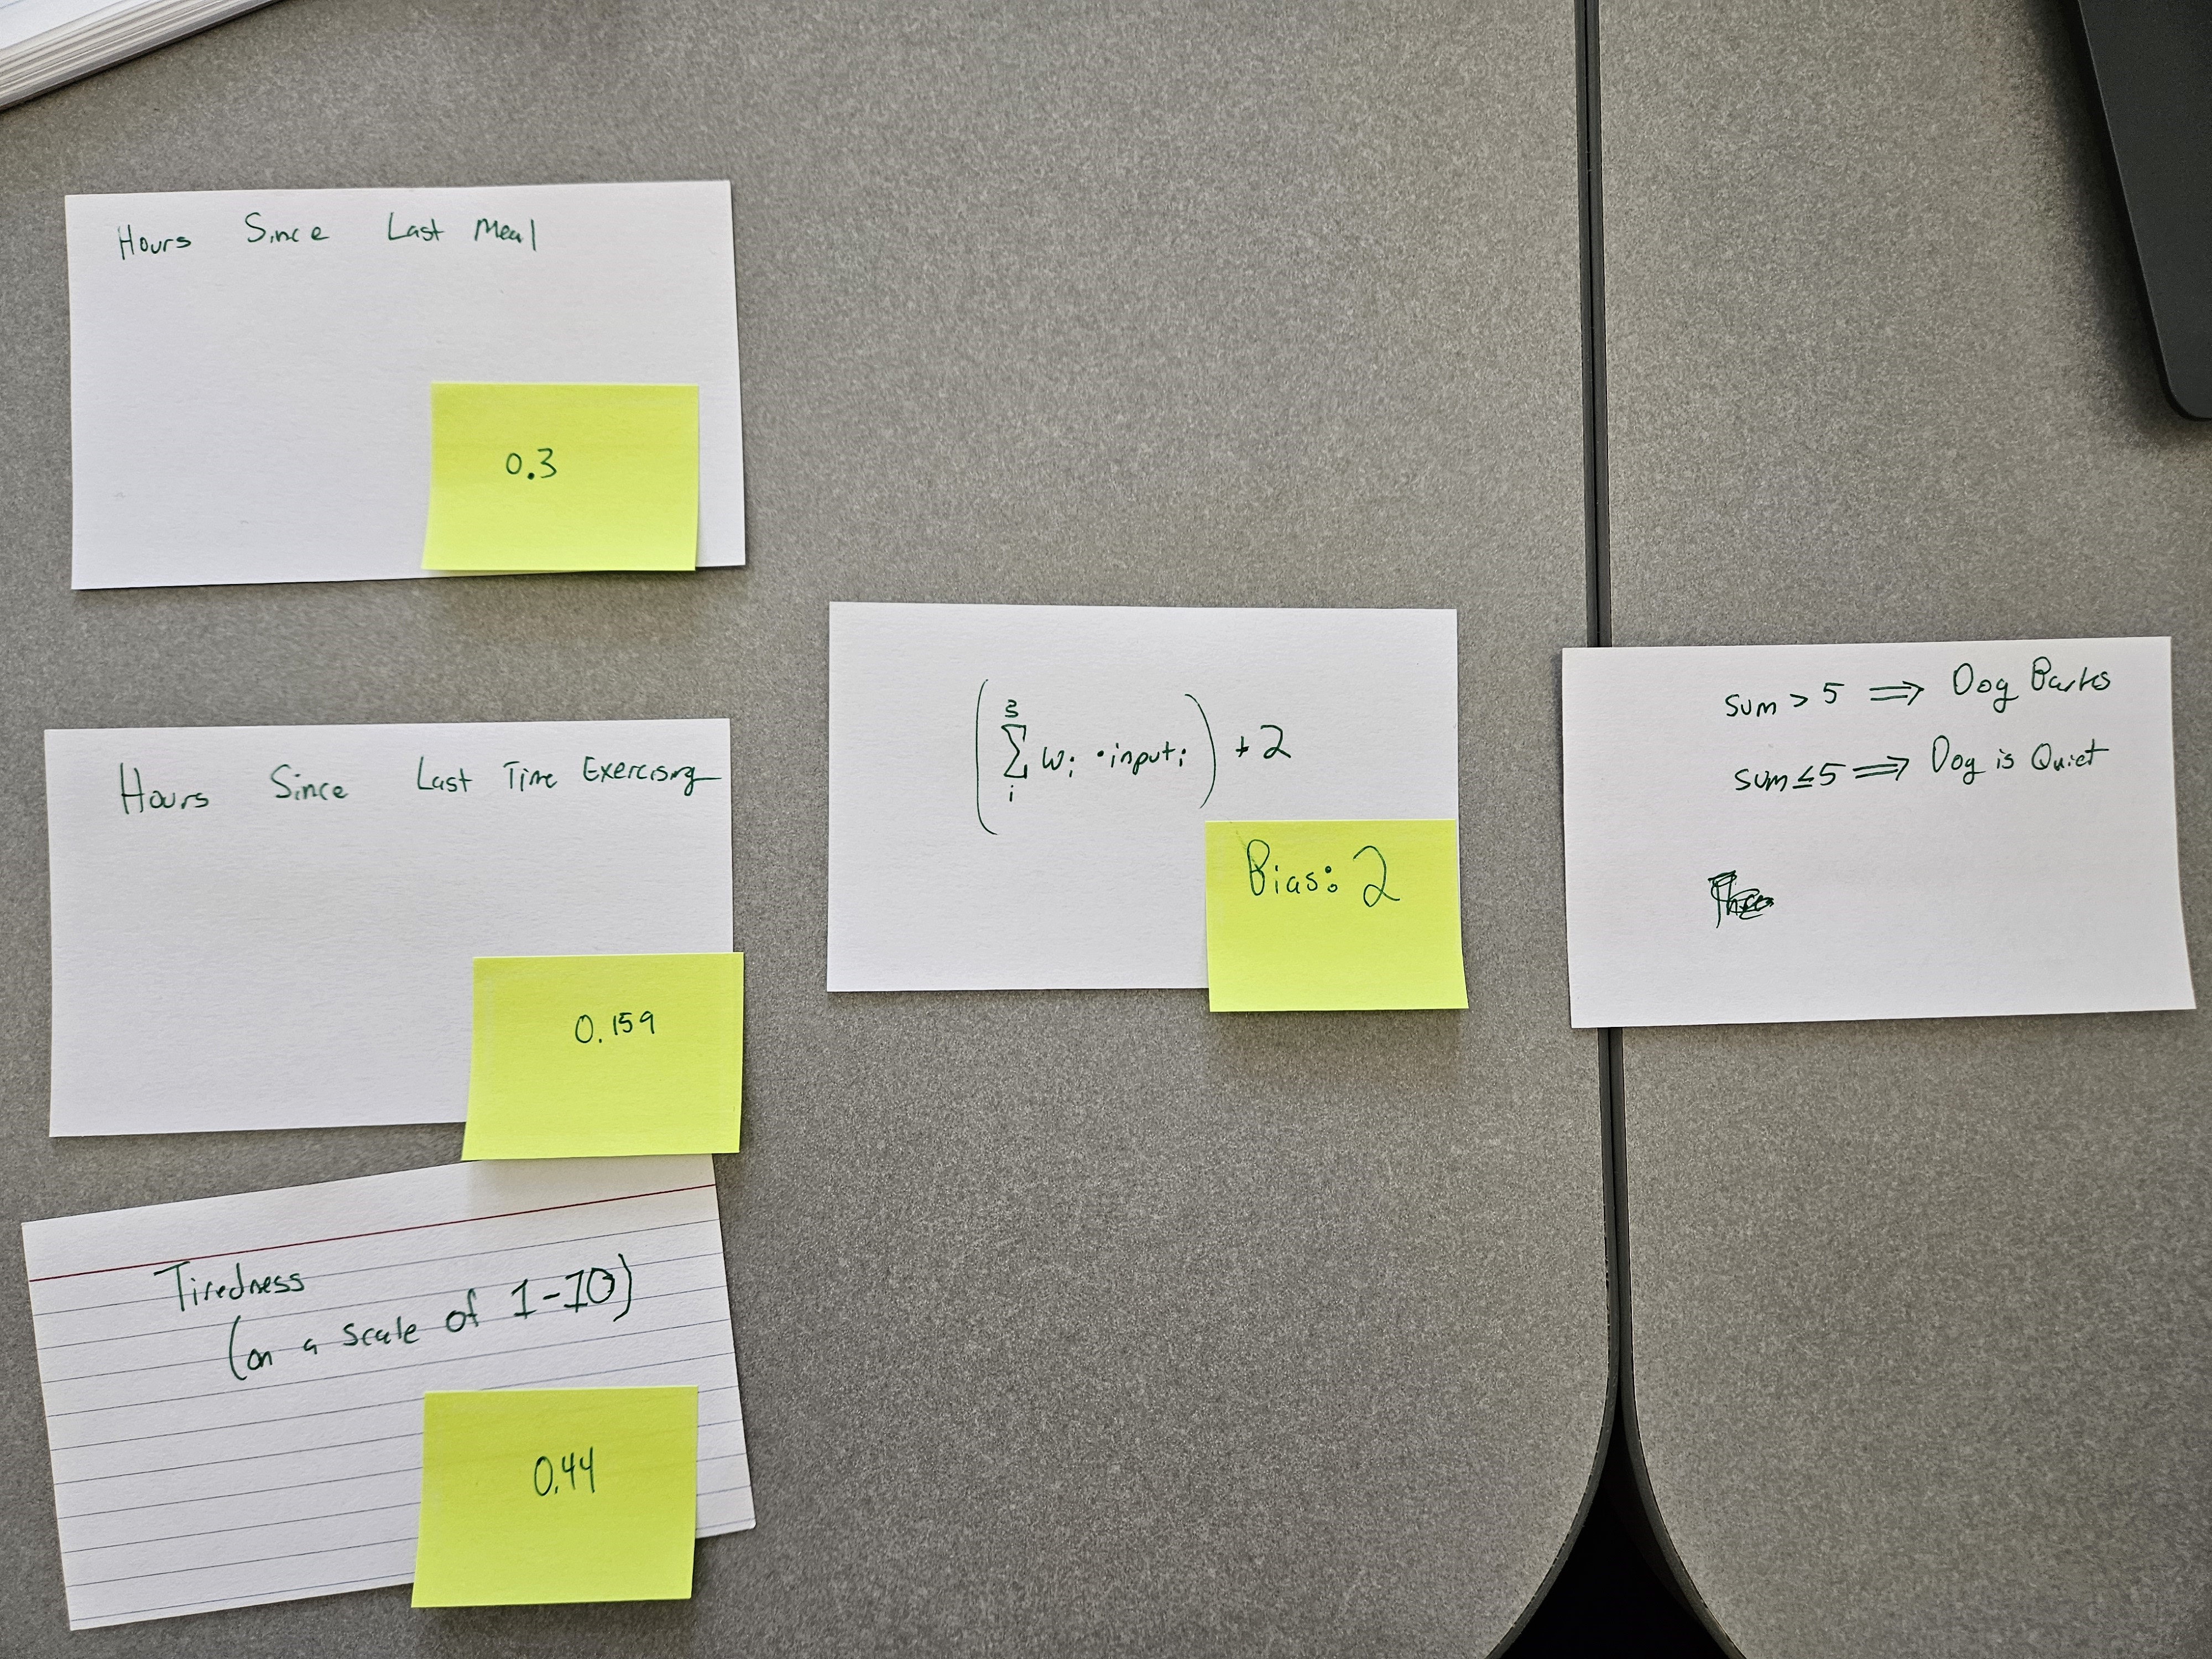 Hours Since Last Meal
0.3
Hours Since Last Time Exercising
0.159
Tiredness
(on a scale of 1-10)
0.44
(3∑i wi · inputi) + 2
Bias: 2
sum > 5 ⟹ Dog Barks
sum ≤ 5 ⟹ Dog is Quiet